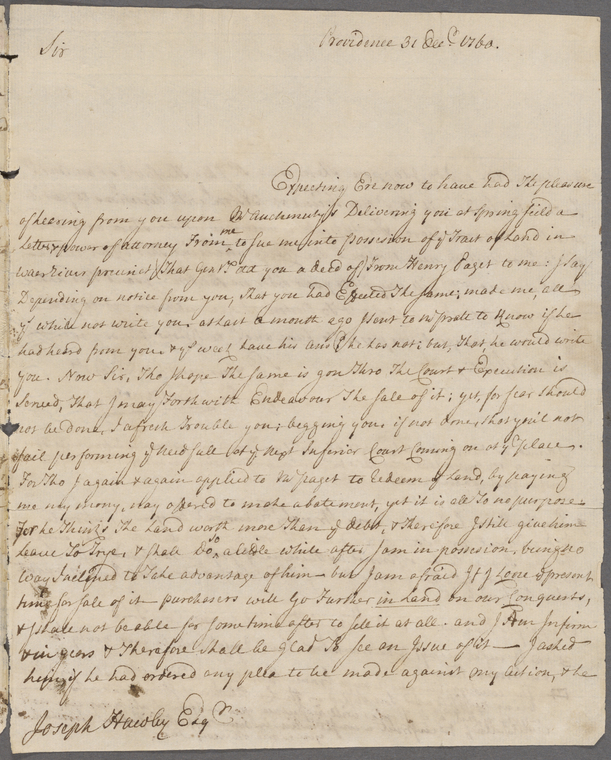 Providence 31 Decr. 1760.
Sir
Expecting Ere now to have had The pleasure
of heering from you upon Mr Auchmuty's Delivering you at Springfield a
letter & power of attorney From me, to sue me into possesion of ye Tract of Land in
precinct That Genl a deed off From Henry Paget to me: I say
Depending on notice from you, that you had Effected The same; made me, all
ye while not write you. at last a month ago I sent to Mr pratt to Know if he
had heard from you. & ys week have his ansr he has not: but, That he would write
you. Now Sir, Tho I hope The same is gon Thro The Court & Execution is
Served, That I may Forthwith Endeavour The sale of it; yet for fear should
not be done, I afresh Trouble you; begging you, if not done, that you'l not
fail performing ye Needfull at ye Next Inferior Court Coming on at yr place.
For Tho I again & again applied to Mr paget to Redeem ye Land, by paying
me my mony, nay offered to make abatement, yet it is all To no purpose
For he Thinks The Land worth more Than ye debt, & therefore I still give him
Leave To Trye, & shall Do so, a little while after I am in possesion, being no
way Inclined to Take advantage of him — but I am afraid If I Loose ye present
time for sale of it — purchasers will Go Further in Land on our Conquests,
& I shall not be able for some time after to sell it at all. and I am Infirm
& in years & Therefore shall be Glad To see an Issue of it — I asked
him if he had ordered any plea to be made against my action, & he
Joseph Hawley Esqr.